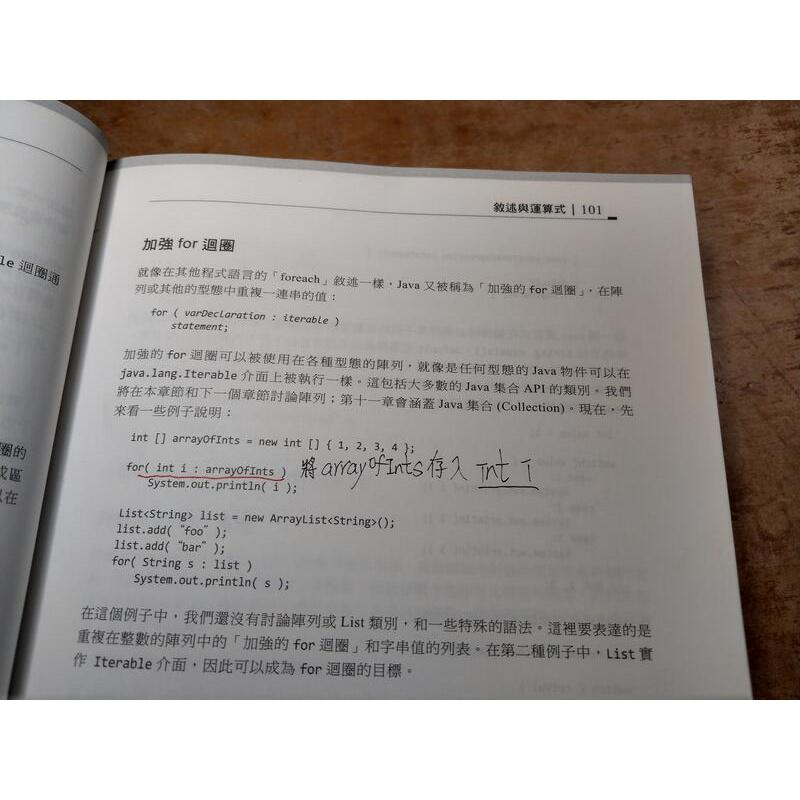 le 迴圈通
圈的
或區
以在
敘述與運算式 | 101
加強 for 迴圈
就像在其他程式語言的「foreach」敘述一樣，Java 又被稱為「加強的 for 迴圈」，在陣
列或其他的型態中重複一連串的值：
for ( varDeclaration : iterable )
statement;
加強的 for 迴圈可以被使用在各種型態的陣列，就像是任何型態的 Java 物件可以在
java.lang.Iterable 介面上被執行一樣。這包括大多數的 Java 集合 API 的類別。我們
將在本章節和下一個章節討論陣列；第十一章會涵蓋 Java 集合 (Collection)。現在，先
來看一些例子說明：
int [] arrayOfInts = new int [] { 1, 2, 3, 4 };
for( int i : arrayOfInts ) 將 arrayOfInts 存入 int i
System.out.println( i );
List<String> list = new ArrayList<String>();
list.add( "foo" );
list.add( "bar" );
for( String s : list )
System.out.println( s );
在這個例子中，我們還沒有討論陣列或 List 類別，和一些特殊的語法。這裡要表達的是
重複在整數的陣列中的「加強的 for 迴圈」和字串值的列表。在第二種例子中，List 實
作 Iterable 介面，因此可以成為 for 迴圈的目標。